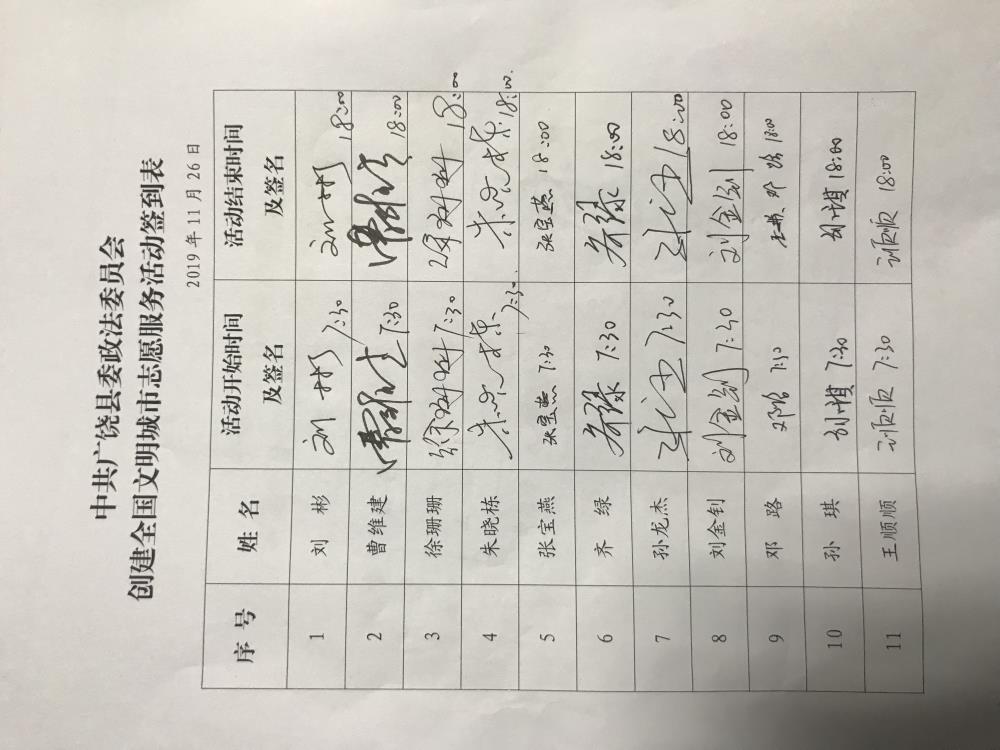 中共广饶县委政法委员会
创建全国文明城市志愿服务活动签到表
2019年11月26日
序 号 姓 名 活动开始时间及签名 活动结束时间及签名
1 刘 彬 刘彬 7:30 刘彬 18:00
2 曹维建 曹维建 7:30 曹维建 18:00
3 徐珊珊 徐珊珊 7:30 徐珊珊 18:00
4 朱晓栋 朱晓栋 7:30 朱晓栋 18:00
5 张宝燕 张宝燕 7:30 张宝燕 18:00
6 齐 绿 齐绿 7:30 齐绿 18:00
7 孙龙杰 7:30 18:00
8 刘金钊 刘金钊 7:30 刘金钊 18:00
9 邓 路 邓路 7:30 邓路 18:00
10 孙 琪 孙琪 7:30 孙琪 18:00
11 王顺顺 王顺顺 7:30 王顺顺 18:00